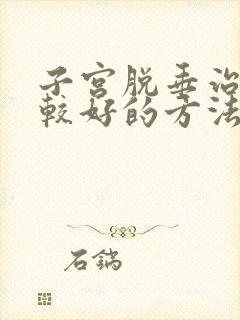 子宫脱垂治
较好的方法
石锅